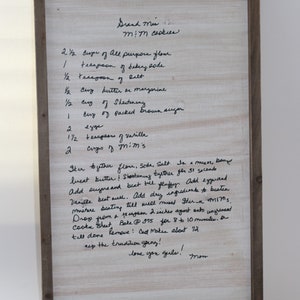 Grand Ma's
M&M Cookies
2 ½ cups of All Purpose flour
1 teaspoon of baking soda
½ teaspoon of Salt
½ cup butter or margarine
½ cup of Shortening
1 cup of Packed brown sugar
2 eggs
1½ teaspoon of Vanilla
2 cups of M&M's
Stir together flour, Soda, Salt. In a mixer bowl
beat butter & Shortening together for 30 seconds
Add sugar and beat till fluffy. Add eggs and
Vanilla beat well. Add dry ingredients to beaten
mixture beating till well mixed. Stir in M&M's
Drop from a teaspoon 2 inches apart onto ungreased
Cookie Sheet Bake @ 375 for 8 to 10 minutes or
till done Remove & Cool Makes about 72
the tradition going!
love you girls!
Mom